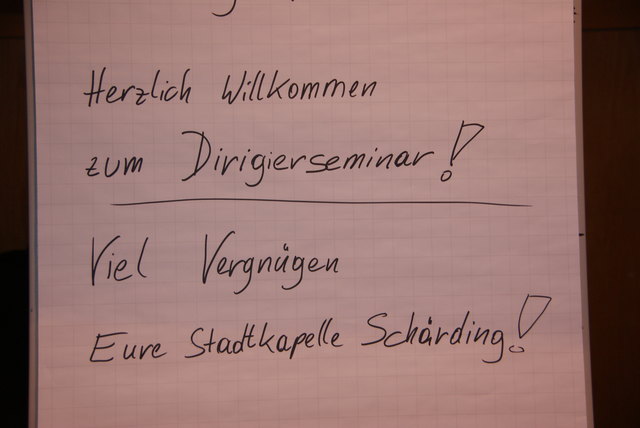 Herzlich Willkommen
zum Dirigierseminar!
Viel Vergnügen
Eure Stadtkapelle Schärding!